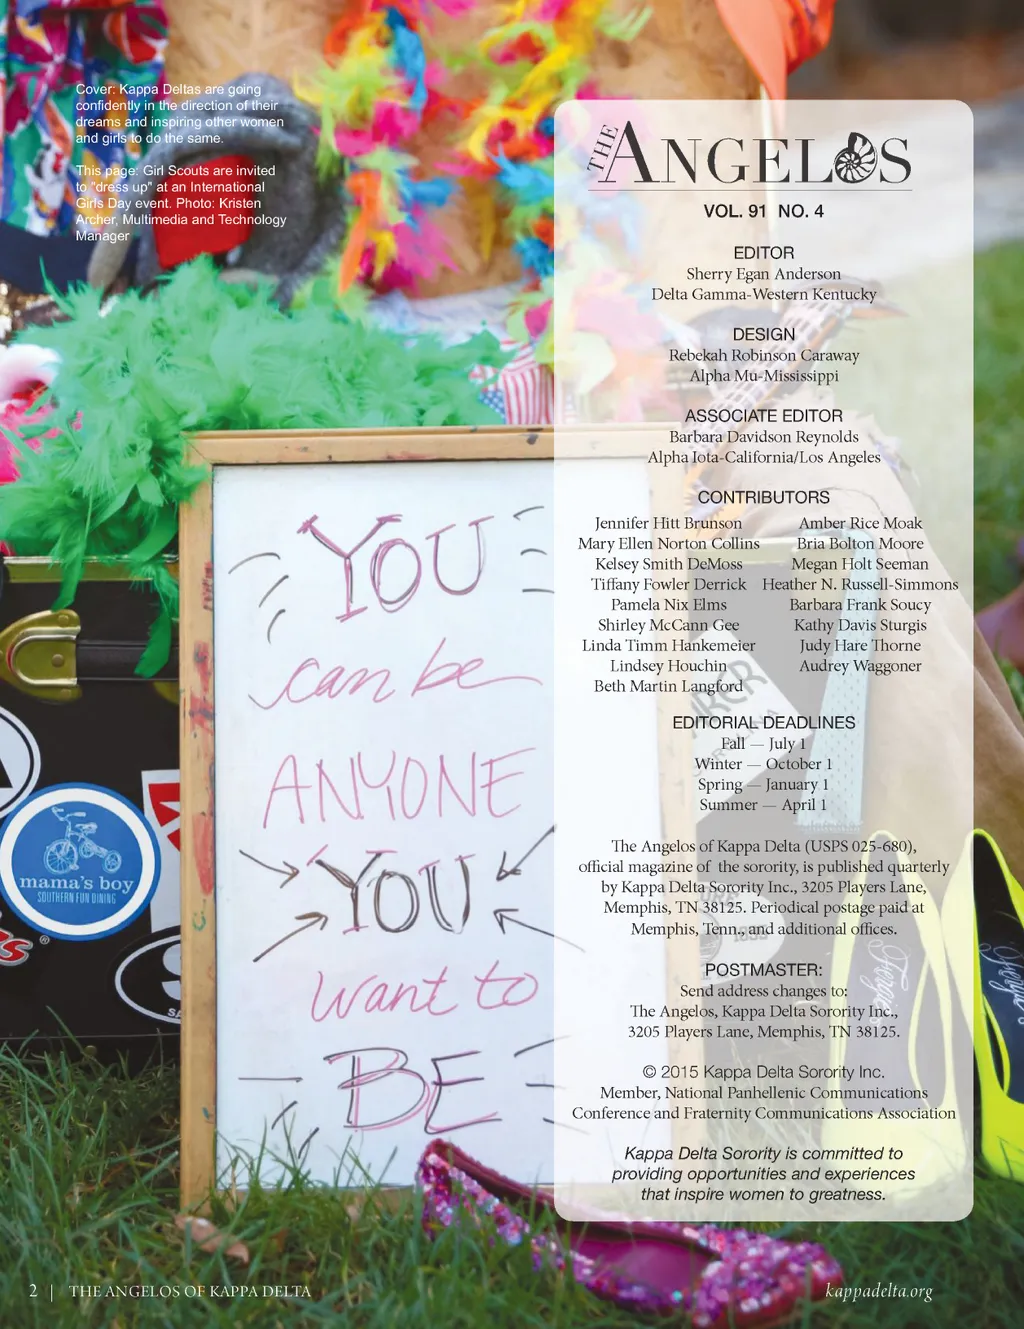 Cover: Kappa Deltas are going
confidently in the direction of their
dreams and inspiring other women
and girls to do the same.
This page: Girl Scouts are invited
to "dress up" at an International
Girls Day event. Photo: Kristen
Archer, Multimedia and Technology
Manager
THE ANGELOS
VOL. 91 NO. 4
EDITOR
Sherry Egan Anderson
Delta Gamma-Western Kentucky
DESIGN
Rebekah Robinson Caraway
Alpha Mu-Mississippi
ASSOCIATE EDITOR
Barbara Davidson Reynolds
Alpha Iota-California/Los Angeles
CONTRIBUTORS
Jennifer Hitt Brunson
Mary Ellen Norton Collins
Kelsey Smith DeMoss
Tiffany Fowler Derrick
Pamela Nix Elms
Shirley McCann Gee
Linda Timm Hankemeier
Lindsey Houchin
Beth Martin Langford
Amber Rice Moak
Bria Bolton Moore
Megan Holt Seeman
Heather N. Russell-Simmons
Barbara Frank Soucy
Kathy Davis Sturgis
Judy Hare Thorne
Audrey Waggoner
EDITORIAL DEADLINES
Fall — July 1
Winter — October 1
Spring — January 1
Summer — April 1
The Angelos of Kappa Delta (USPS 025-680),
official magazine of the sorority, is published quarterly
by Kappa Delta Sorority Inc., 3205 Players Lane,
Memphis, TN 38125. Periodical postage paid at
Memphis, Tenn., and additional offices.
POSTMASTER:
Send address changes to:
The Angelos, Kappa Delta Sorority Inc.,
3205 Players Lane, Memphis, TN 38125.
© 2015 Kappa Delta Sorority Inc.
Member, National Panhellenic Communications
Conference and Fraternity Communications Association
Kappa Delta Sorority is committed to
providing opportunities and experiences
that inspire women to greatness.
YOU
can be
ANYONE
YOU
want to
BE
mama's boy
SOUTHERN FUN DINING
2 | THE ANGELOS OF KAPPA DELTA
kappadelta.org